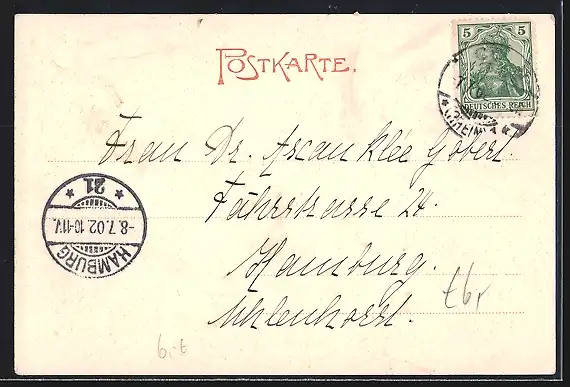 POSTKARTE.
5 5
DEUTSCHES REICH
(RHEIN)
Frau Dr. Ascan Klée Gobert.
Fährstrasse 24.
Hamburg.
Uhlenhorst.
HAMBURG
-8.7.02.10-11V.
* 21 *